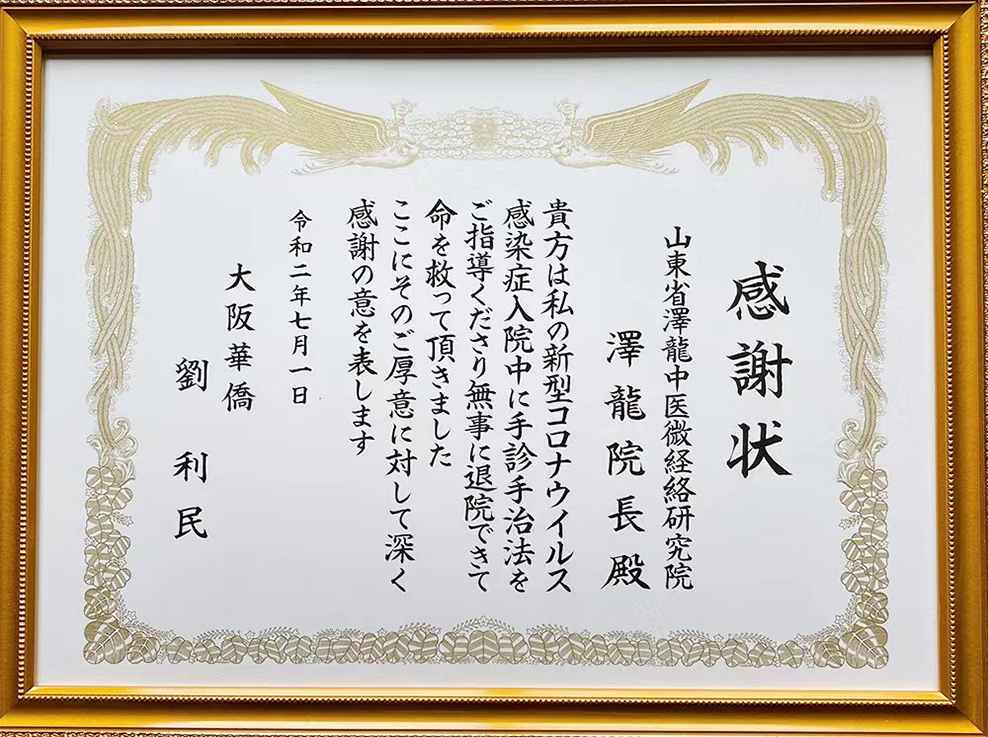 感謝状
山東省澤龍中医微経絡研究院
澤龍院長殿
貴方は私の新型コロナウイルス
感染症入院中に手診手治法を
ご指導くださり無事に退院できて
命を救って頂きました
ここにそのご厚意に対して深く
感謝の意を表します
令和二年七月一日
大阪華僑
劉利民